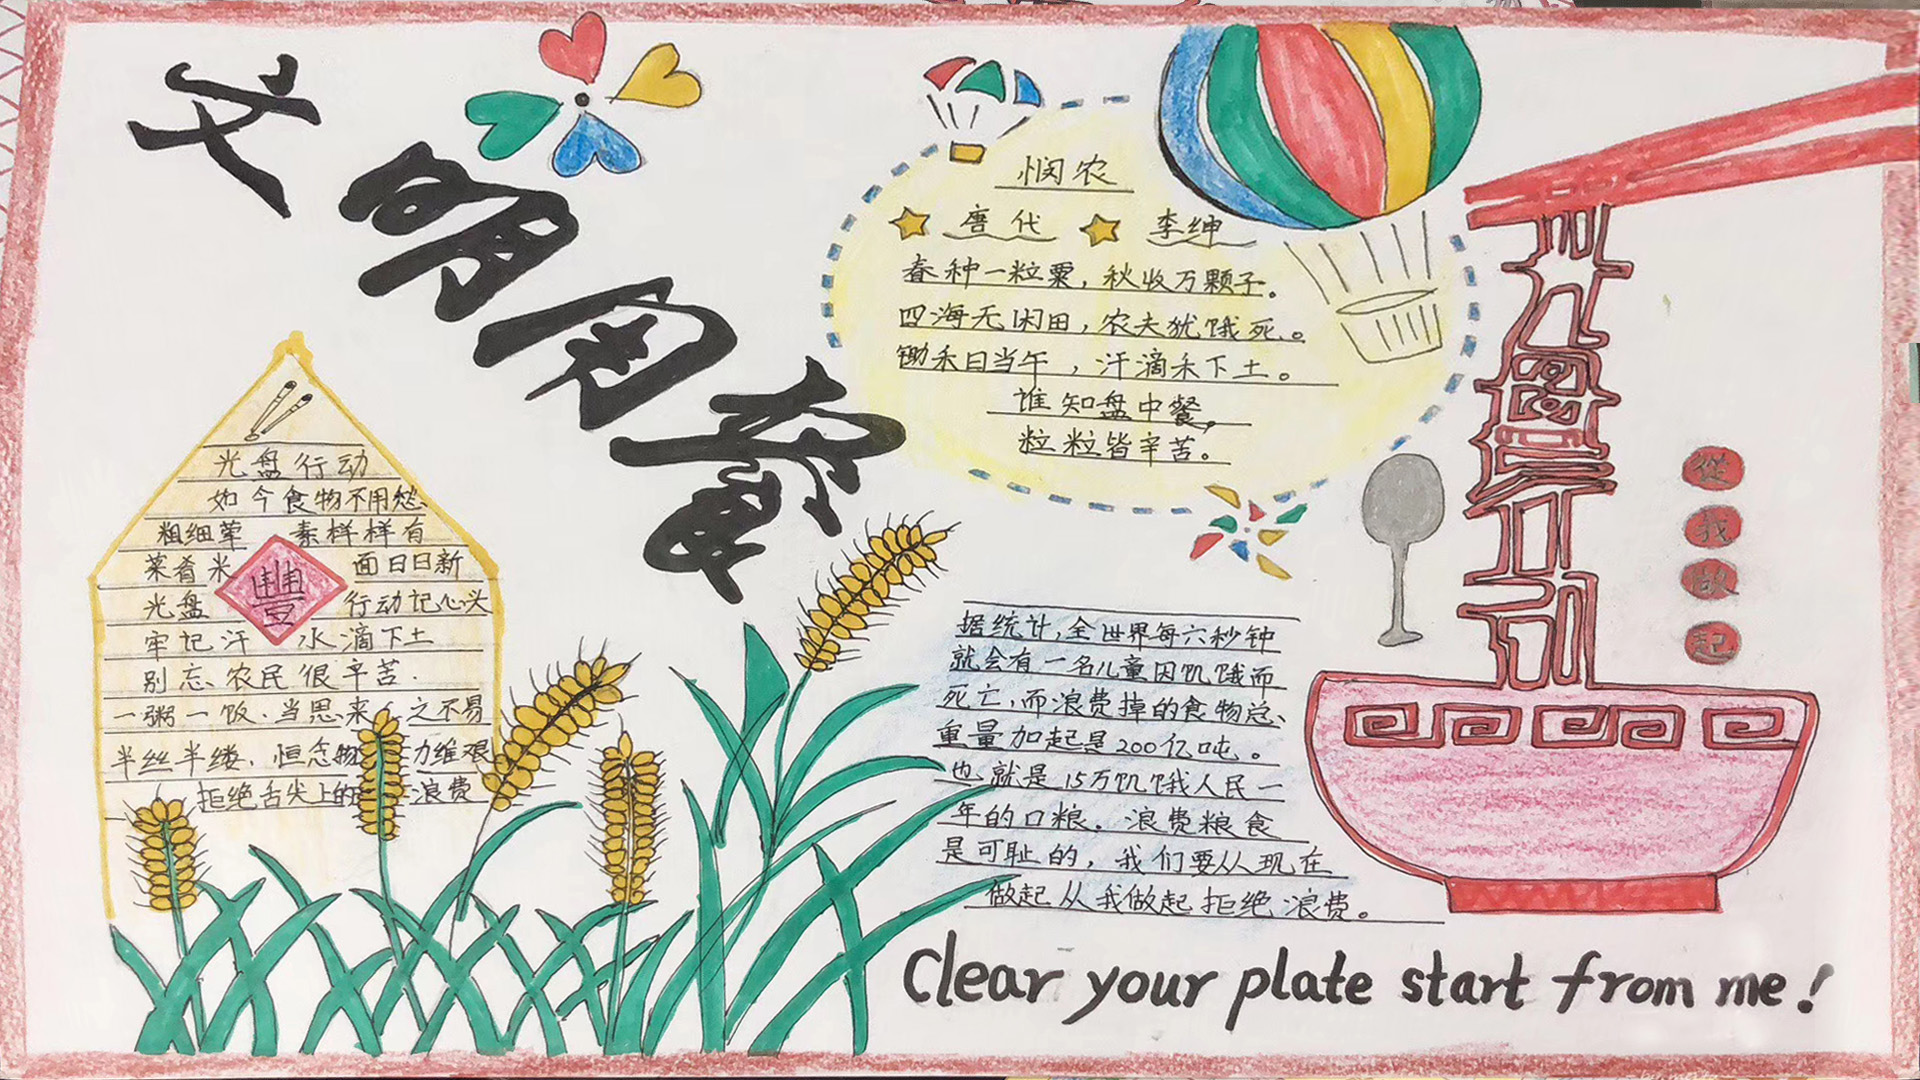 文明用餐
悯农
唐代 李绅
春种一粒粟，秋收万颗子。
四海无闲田，农夫犹饿死。
锄禾日当午，汗滴禾下土。
谁知盘中餐，
粒粒皆辛苦。
光盘行动
如今食物不用愁
粗细荤 素样样有
菜肴米 面日日新
豐
光盘 行动记心头
牢记汗 水滴下土
别忘农民很辛苦.
一粥一饭.当思来 之不易
半丝半缕.恒念物 力维艰
拒绝舌尖上的 浪费
据统计,全世界每六秒钟
就会有一名儿童因饥饿而
死亡,而浪费掉的食物总
重量加起是200亿吨。
也就是15万饥饿人民一
年的口粮。浪费粮食
是可耻的，我们要从现在
做起从我做起拒绝浪费。
光盘行动
從我做起
Clear your plate start from me!